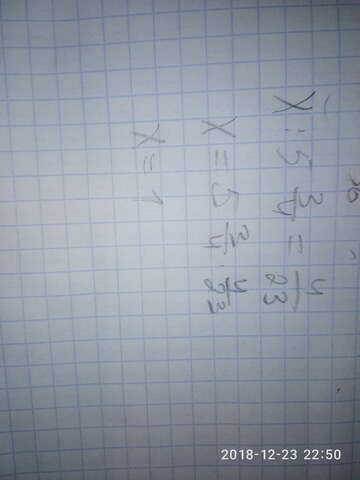 x : 5 3/4 = 4/23
x = 5 3/4 · 4/23
x = 1
2018-12-23 22:50